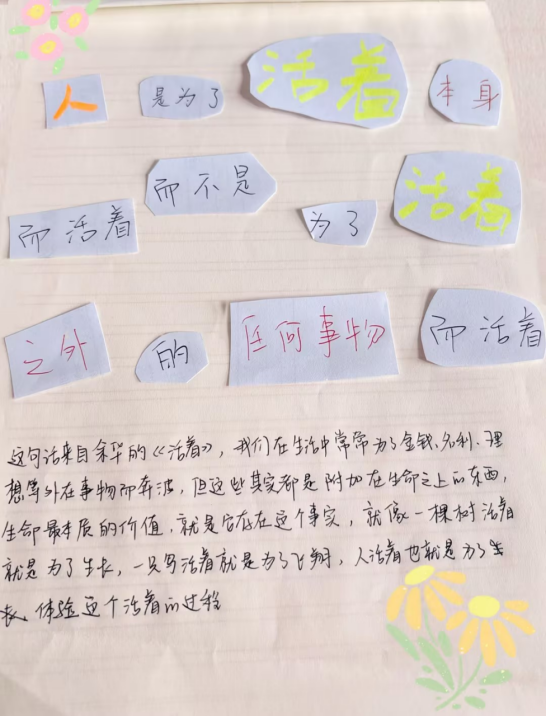 人 是为了 活着 本身
而活着 而不是 为了 活着
之外 的 任何事物 而活着
这句话来自余华的《活着》,我们在生活中常常为了金钱、名利、理
想等外在事物而奔波,但这些其实都是附加在生命之上的东西,
生命最本质的价值,就是它存在这个事实,就像一棵树活着
就是为了生长,一只鸟活着就是为了飞翔,人活着也就是为了生
长、体验这个活着的过程